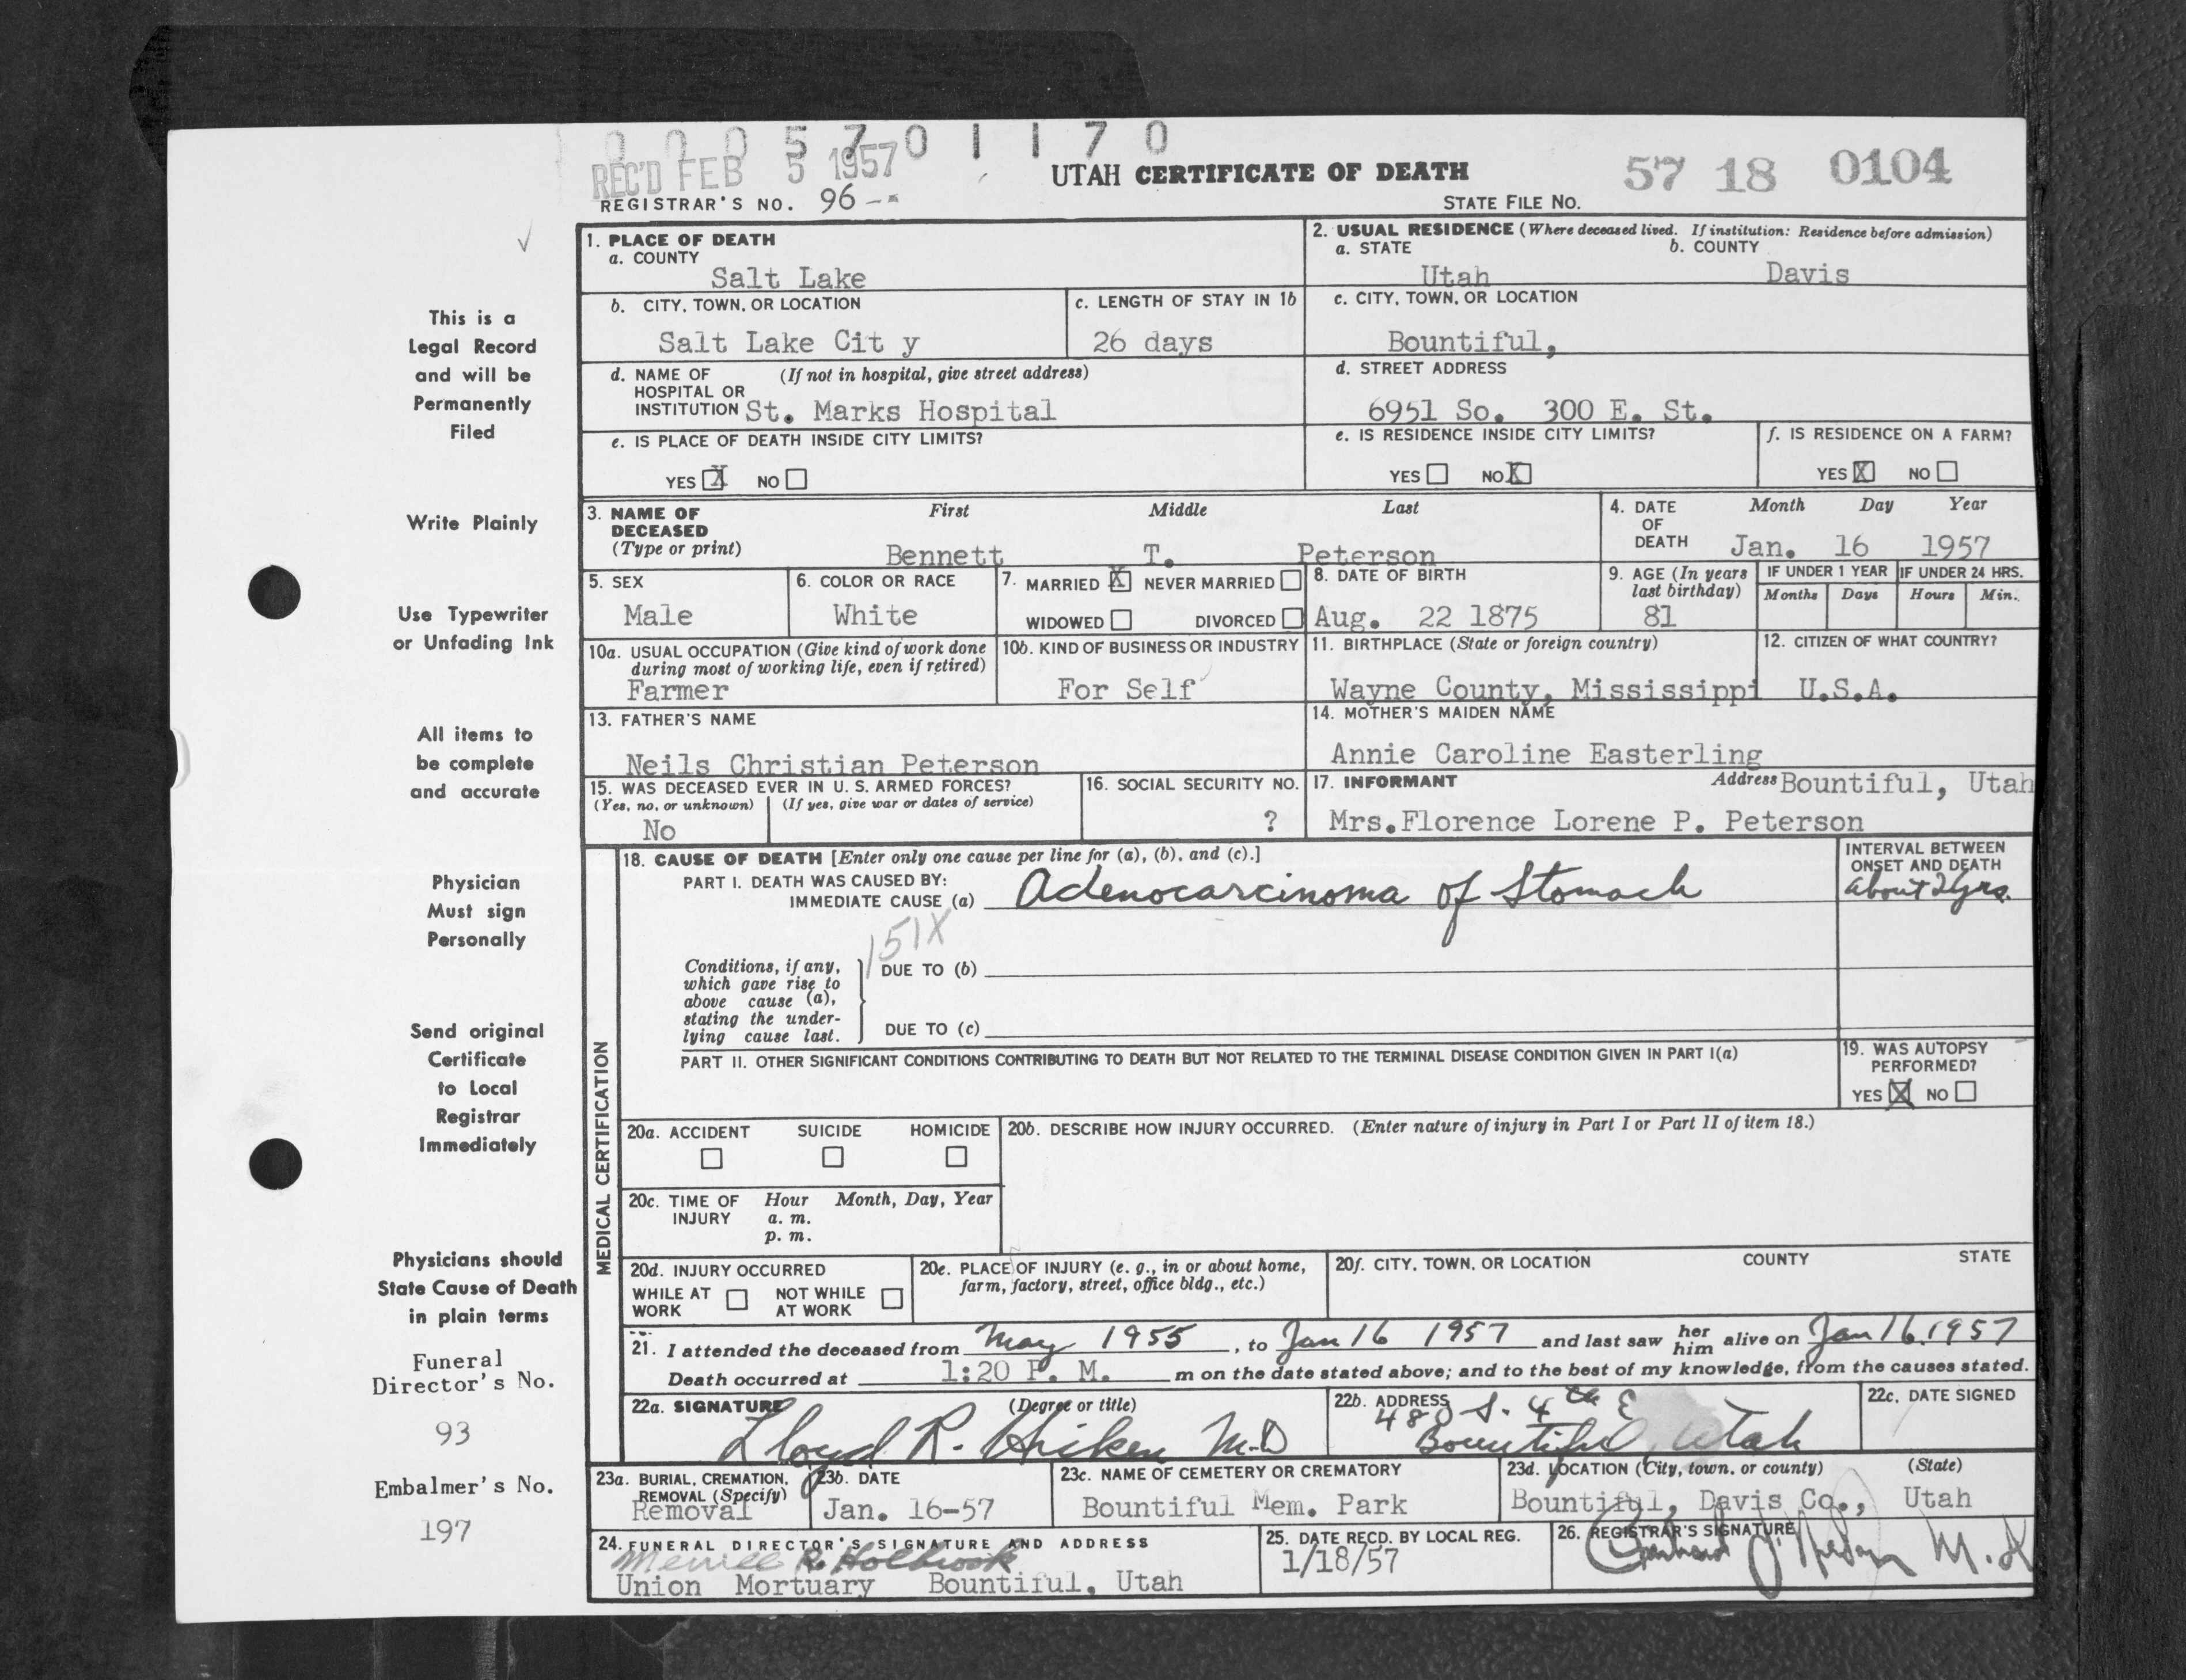 0 0 0 5 7 0 1 1 7 0
REC'D FEB 5 1957
UTAH CERTIFICATE OF DEATH
57 18 0104
REGISTRAR'S NO. 96--
STATE FILE NO.
1. PLACE OF DEATH
a. COUNTY
Salt Lake
2. USUAL RESIDENCE (Where deceased lived. If institution: Residence before admission)
a. STATE b. COUNTY
Utah Davis
b. CITY, TOWN, OR LOCATION
Salt Lake Cit y
c. LENGTH OF STAY IN 1b
26 days
c. CITY, TOWN, OR LOCATION
Bountiful,
d. NAME OF (If not in hospital, give street address)
HOSPITAL OR
INSTITUTION St. Marks Hospital
d. STREET ADDRESS
6951 So. 300 E. St.
e. IS PLACE OF DEATH INSIDE CITY LIMITS?
YES X NO
e. IS RESIDENCE INSIDE CITY LIMITS?
YES NO X
f. IS RESIDENCE ON A FARM?
YES X NO
3. NAME OF
DECEASED
(Type or print)
First Middle Last
Bennett T. Peterson
4. DATE
OF
DEATH
Month Day Year
Jan. 16 1957
5. SEX
Male
6. COLOR OR RACE
White
7. MARRIED X NEVER MARRIED
WIDOWED DIVORCED
8. DATE OF BIRTH
Aug. 22 1875
9. AGE (In years
last birthday)
81
IF UNDER 1 YEAR
Months Days
IF UNDER 24 HRS.
Hours Min.
10a. USUAL OCCUPATION (Give kind of work done
during most of working life, even if retired)
Farmer
10b. KIND OF BUSINESS OR INDUSTRY
For Self
11. BIRTHPLACE (State or foreign country)
Wayne County, Mississippi
12. CITIZEN OF WHAT COUNTRY?
U.S.A.
13. FATHER'S NAME
Neils Christian Peterson
14. MOTHER'S MAIDEN NAME
Annie Caroline Easterling
15. WAS DECEASED EVER IN U. S. ARMED FORCES?
(Yes, no, or unknown) (If yes, give war or dates of service)
No
16. SOCIAL SECURITY NO.
?
17. INFORMANT Address Bountiful, Utah
Mrs.Florence Lorene P. Peterson
MEDICAL CERTIFICATION
18. CAUSE OF DEATH [Enter only one cause per line for (a), (b), and (c).]
PART I. DEATH WAS CAUSED BY:
IMMEDIATE CAUSE (a) Adenocarcinoma of Stomach
INTERVAL BETWEEN
ONSET AND DEATH
About 2 yrs.
151X
Conditions, if any,
which gave rise to
above cause (a),
stating the under-
lying cause last.
DUE TO (b)
DUE TO (c)
PART II. OTHER SIGNIFICANT CONDITIONS CONTRIBUTING TO DEATH BUT NOT RELATED TO THE TERMINAL DISEASE CONDITION GIVEN IN PART I(a)
19. WAS AUTOPSY
PERFORMED?
YES X NO
20a. ACCIDENT SUICIDE HOMICIDE
20b. DESCRIBE HOW INJURY OCCURRED. (Enter nature of injury in Part I or Part II of item 18.)
20c. TIME OF Hour Month, Day, Year
INJURY a. m.
p. m.
20d. INJURY OCCURRED
WHILE AT NOT WHILE
WORK AT WORK
20e. PLACE OF INJURY (e. g., in or about home,
farm, factory, street, office bldg., etc.)
20f. CITY, TOWN, OR LOCATION COUNTY STATE
21. I attended the deceased from May 1955, to Jan 16 1957 and last saw her him alive on Jan 16, 1957
Death occurred at 1:20 P. M. m on the date stated above; and to the best of my knowledge, from the causes stated.
22a. SIGNATURE (Degree or title)
Lloyd R. Hicken M.D
22b. ADDRESS
480 S. 4th E
Bountiful, Utah
22c. DATE SIGNED
23a. BURIAL, CREMATION,
REMOVAL (Specify)
Removal
23b. DATE
Jan. 16-57
23c. NAME OF CEMETERY OR CREMATORY
Bountiful Mem. Park
23d. LOCATION (City, town, or county) (State)
Bountiful, Davis Co., Utah
24. FUNERAL DIRECTOR'S SIGNATURE AND ADDRESS
Merrill R. Holbrook
Union Mortuary Bountiful, Utah
25. DATE RECD. BY LOCAL REG.
1/18/57
26. REGISTRAR'S SIGNATURE
This is a
Legal Record
and will be
Permanently
Filed
Write Plainly
Use Typewriter
or Unfading Ink
All items to
be complete
and accurate
Physician
Must sign
Personally
Send original
Certificate
to Local
Registrar
Immediately
Physicians should
State Cause of Death
in plain terms
Funeral
Director's No.
93
Embalmer's No.
197